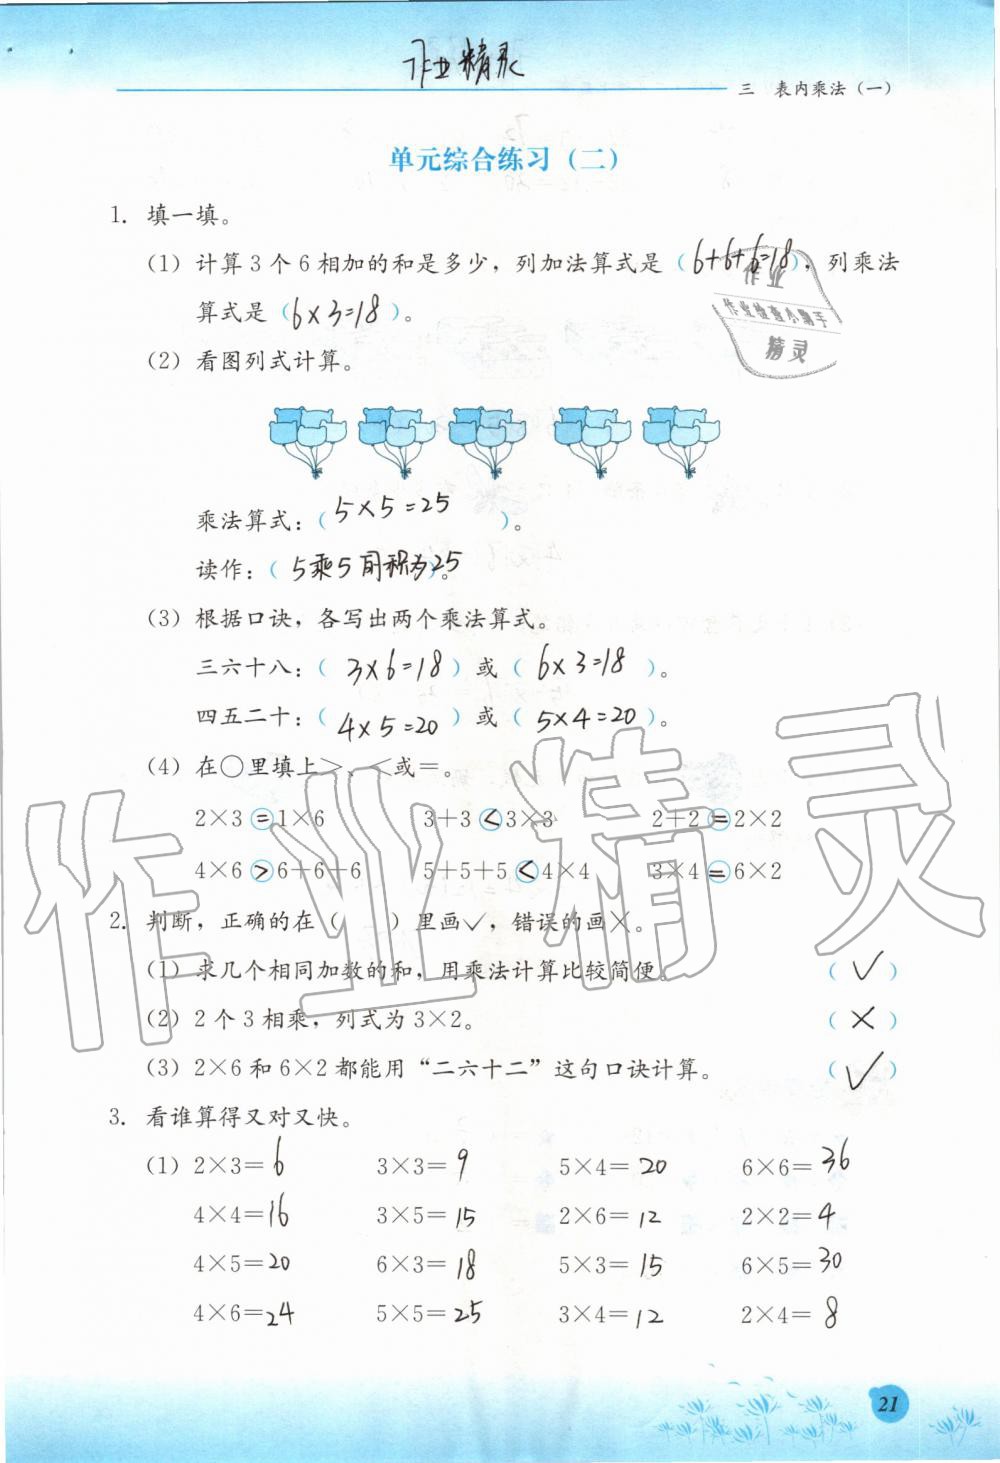 作业精灵
三 表内乘法(一)
单元综合练习(二)
1. 填一填。
(1) 计算3个6相加的和是多少,列加法算式是(6+6+6=18),列乘法
算式是(6×3=18)。
作业
作业检查小助手
精灵
(2) 看图列式计算。
乘法算式:(5×5=25)。
读作:(5乘5 积为25)。
(3) 根据口诀,各写出两个乘法算式。
三六十八:(3×6=18)或(6×3=18)。
四五二十:(4×5=20)或(5×4=20)。
(4) 在○里填上>、<或=。
2×3=1×6 3+3<3×3 2+2=2×2
4×6>6+6+6 5+5+5<4×4 3×4=6×2
2. 判断,正确的在( )里画✓,错误的画×。
(1) 求几个相同加数的和,用乘法计算比较简便。 (✓)
(2) 2个3相乘,列式为3×2。 (×)
(3) 2×6和6×2都能用“二六十二”这句口诀计算。 (✓)
3. 看谁算得又对又快。
(1) 2×3=6 3×3=9 5×4=20 6×6=36
4×4=16 3×5=15 2×6=12 2×2=4
4×5=20 6×3=18 5×3=15 6×5=30
4×6=24 5×5=25 3×4=12 2×4=8
21
作业精灵